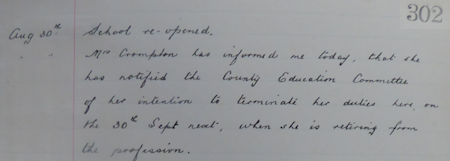 302
Aug 30th School re-opened.
" " Mrs Crompton has informed me today, that she
has notified the County Education Committee
of her intention to terminate her duties here, on
the 30th Sept next, when she is retiring from
the profession.